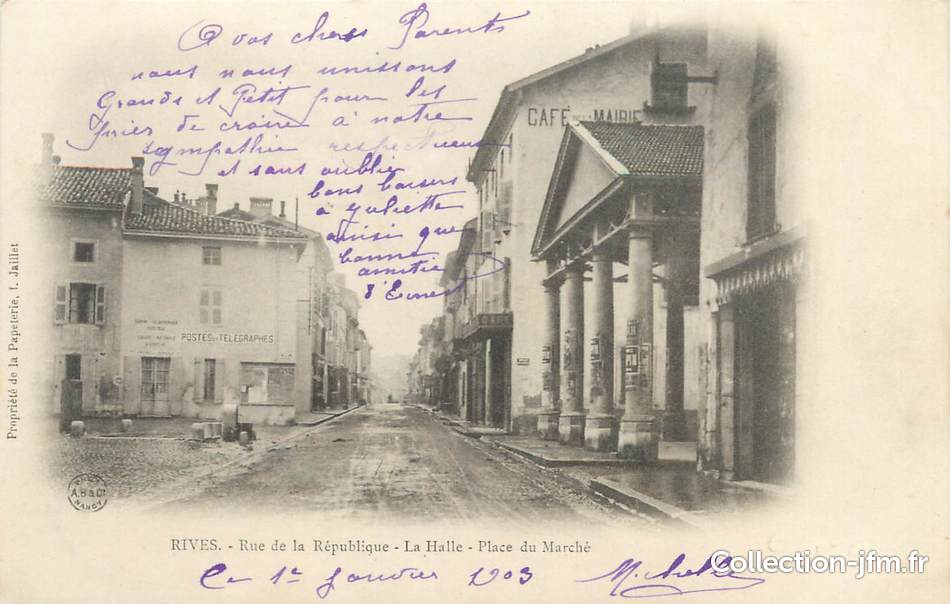 A vos chers Parents
nous nous unissons
Grands et Petit pour les
prier de croire à notre
sympathie respectueuse
et sans oublier
bons baisers
à Juliette
ainsi que
bonne
amitié
d'Ernest
CAFÉ DE LA MAIRIE
POSTES ET TÉLÉGRAPHES
CAFÉ
Propriété de la Papeterie, t. Jaillet
A.B & Cie
NANCY
RIVES. - Rue de la République - La Halle - Place du Marché
Collection-jfm.fr
Ce 1er Janvier 1903